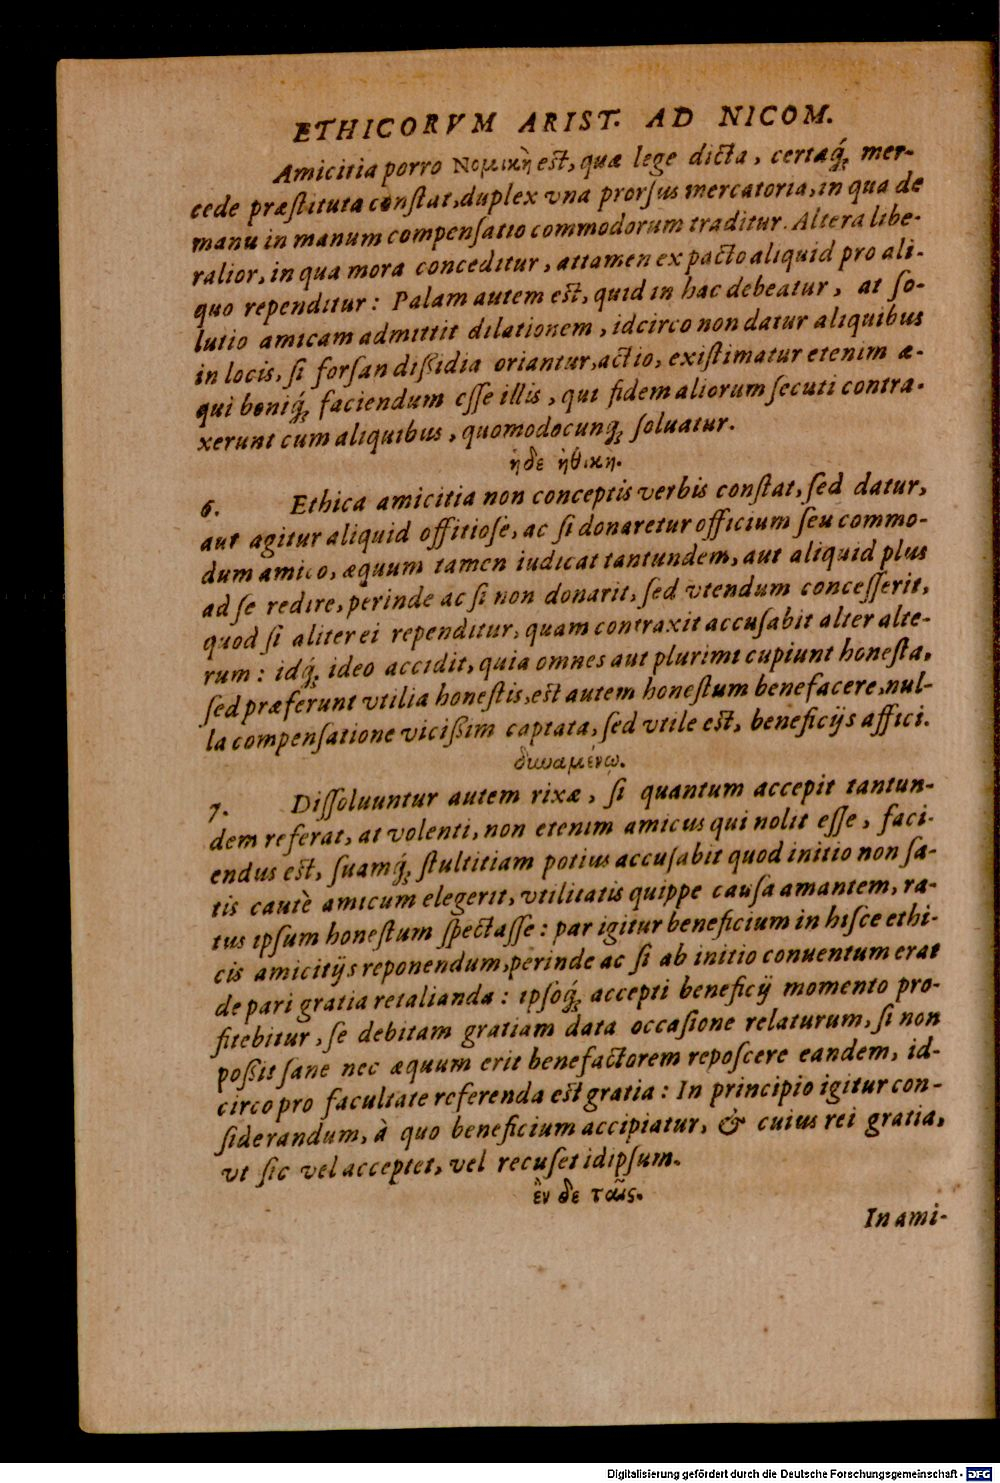 ETHICORVM ARIST. AD NICOM.
Amicitia porro Νομικὴ est, quæ lege dicta, certaq́; mer-
cede præstituta constat, duplex vna prorsus mercatoria, in qua de
manu in manum compensatio commodorum traditur. Altera libe-
ralior, in qua mora conceditur, attamen ex pacto aliquid pro ali-
quo rependitur: Palam autem est, quid in hac debeatur, at so-
lutio amicam admittit dilationem, idcirco non datur aliquibus
in locis, si forsan dißidia oriantur, actio, existimatur etenim æ-
qui boniq́; faciendum esse illis, qui fidem aliorum secuti contra-
xerunt cum aliquibus, quomodocunq; soluatur.
ἡδε ἠθικὴ.
6. Ethica amicitia non conceptis verbis constat, sed datur,
aut agitur aliquid offitiosè, ac si donaretur officium seu commo-
dum amico, æquum tamen iudicat tantundem, aut aliquid plus
ad se redire, perinde ac si non donarit, sed vtendum concesserit,
quod si aliter ei rependitur, quam contraxit accusabit alter alte-
rum: idq́; ideo accidit, quia omnes aut plurimi cupiunt honesta,
sed præferunt vtilia honestis, est autem honestum benefacere, nul-
la compensatione vicißim captata, sed vtile est, beneficijs affici.
δυναμένῳ.
7. Dissoluuntur autem rixæ, si quantum accepit tantun-
dem referat, at volenti, non etenim amicus qui nolit esse, faci-
endus est, suamq́; stultitiam potius accusabit quod initio non sa-
tis cautè amicum elegerit, vtilitatis quippe causa amantem, ra-
tus ipsum honestum spectasse: par igitur beneficium in hisce ethi-
cis amicitijs reponendum, perinde ac si ab initio conuentum erat
de pari gratia retalianda: ipsoq́; accepti beneficij momento pro-
fitebitur, se debitam gratiam data occasione relaturum, si non
poßit sane nec æquum erit benefactorem reposcere eandem, id-
circo pro facultate referenda est gratia: In principio igitur con-
siderandum, à quo beneficium accipiatur, & cuius rei gratia,
vt sic vel acceptet, vel recuset idipsum.
ἓν δε ταῖς.
In ami-
Digitalisierung gefördert durch die Deutsche Forschungsgemeinschaft - DFG